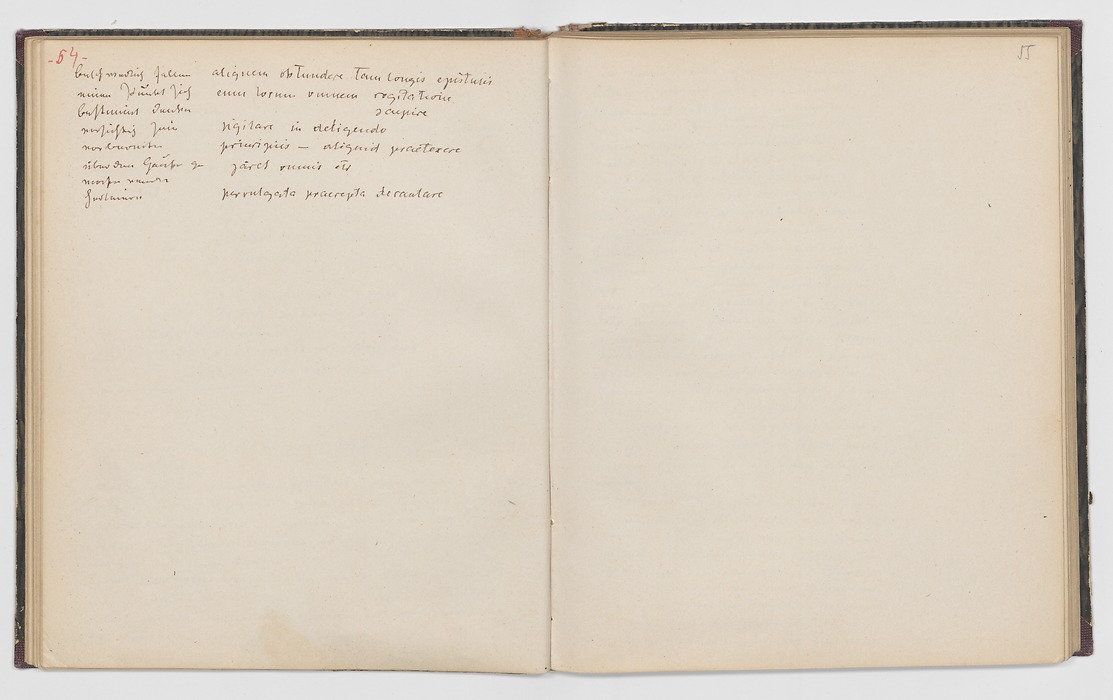 -54-
beschwerlich fallen aliquem obtundere tam longis epistulis
einen Punkt sich eum locum omnem cogitatione
bestimmt denken saepire
vorsichtig sein vigilare in deligendo
vorbereiten principiis — aliquid praetexere
über den Haufen ge jacet omnis
worfen werden
pervulgata praecepta decantare
55